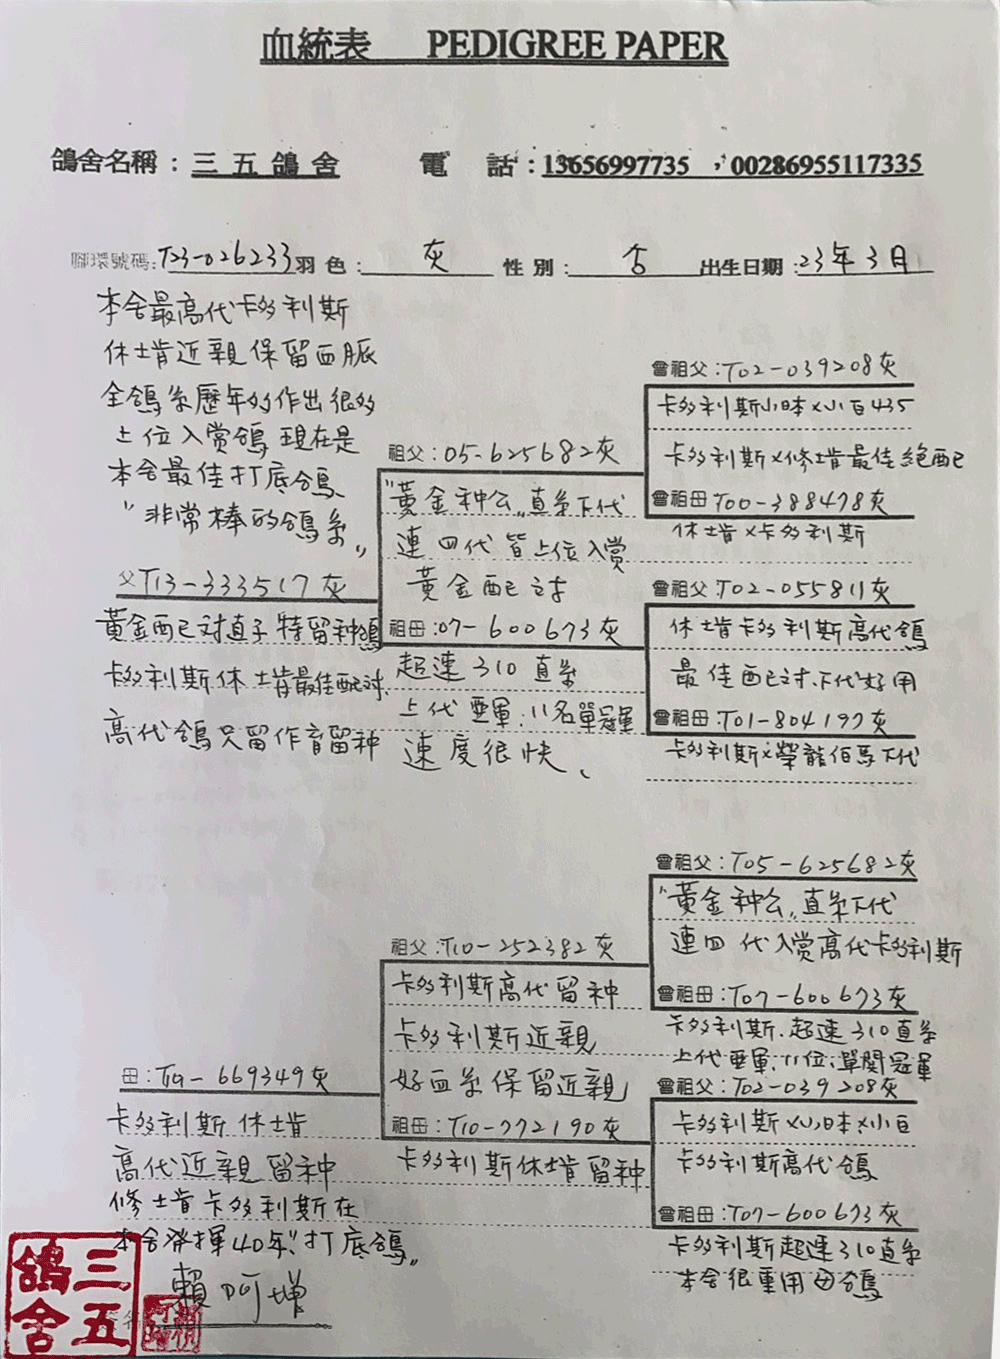 血統表 PEDIGREE PAPER
鴿舍名稱：三五鴿舍 電話：13656997735 ，00286955117335
腳環號碼：T23-026233 羽色：灰 性別： 出生日期：23年3月
本舍最高代卡多利斯
休士肯近親保留血脈
全鴿系歷年的作出很多
上位入赏鴿現在是
本舍最佳打底鴿、
"非常棒的鴿系"
父T13-333517灰
黃金配对直子特留种鴿
卡多利斯休士肯最佳配对、
高代鴿只留作育留种
祖父：05-625682灰
"黃金种公"直系下代
連四代皆上位入赏
黃金配对
祖母：07-600673灰
超速310直系
上代亜軍：11名單冠軍
速度很快、
曾祖父：T02-039208灰
卡多利斯小日本×小白435
卡多利斯×修士肯最佳絕配
曾祖母：T00-388478灰
休士肯×卡多利斯
曾祖父：T02-055811灰
休士肯卡多利斯高代鴿
最佳配对、下代好用
曾祖母：T01-804197灰
卡多利斯×榮龍佰馬下代
母：T19-669349灰
卡多利斯休士肯
高代近親留种
修士肯卡多利斯在
本舍發揮40年"打底鴿"
賴阿增
祖父：T10-252382灰
卡多利斯高代留种
卡多利斯近親
好血系保留近親
祖母：T10-772190灰
卡多利斯休士肯留种
曾祖父：T05-625682灰
"黃金种公"直系下代
連四代入赏高代卡多利斯
曾祖母：T07-600673灰
卡多利斯.超速310直系
上代亜軍：11位：單関冠軍
曾祖父：T02-039208灰
卡多利斯×小日本×小白
卡多利斯高代鴿
曾祖母：T07-600673灰
卡多利斯超速310直系
本舍很重用母鴿
三五鴿舍